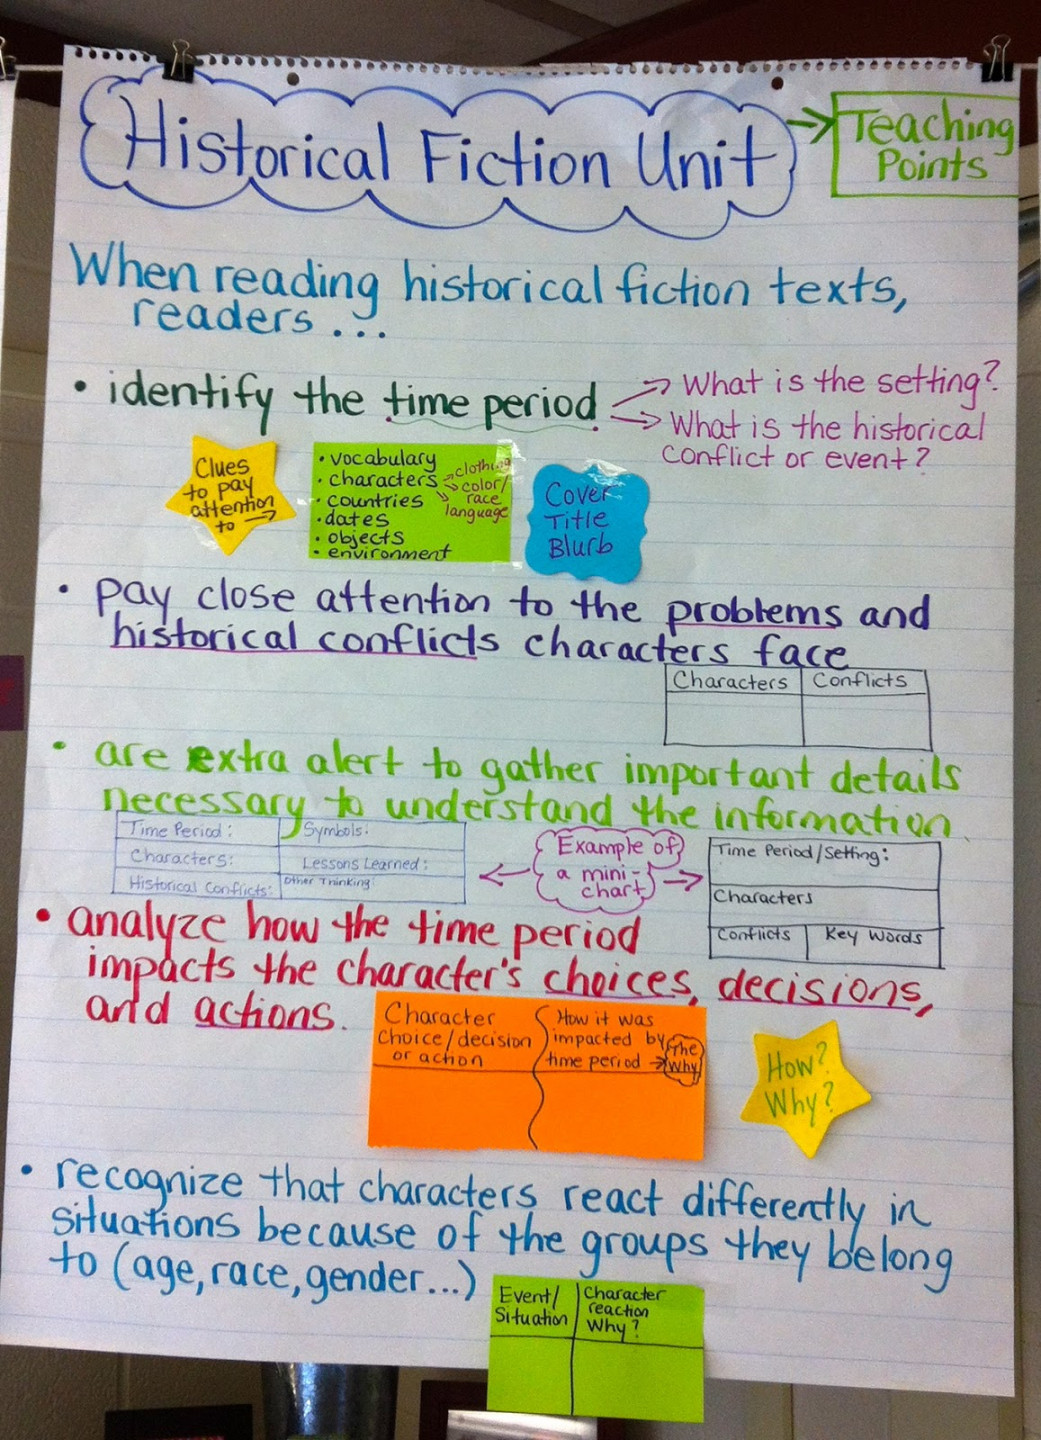 Historical Fiction Unit
Teaching
Points
When reading historical fiction texts,
readers...
• identify the time period
What is the setting?
What is the historical
conflict or event?
Clues
to pay
attention
to
• vocabulary
• characters
• countries
• dates
• objects
• environment
clothing
color/
race
language
Cover
Title
Blurb
• pay close attention to the problems and
historical conflicts characters face
Characters Conflicts
• are extra alert to gather important details
necessary to understand the information
Time Period: Symbols:
Characters: Lessons Learned:
Historical Conflicts: Other Thinking:
Example of
a mini-
chart
Time Period/Setting:
Characters
Conflicts Key Words
• analyze how the time period
impacts the character's choices, decisions,
and actions.
Character
choice/decision
or action
How it was
impacted by
time period
The
Why
How?
Why?
• recognize that characters react differently in
situations because of the groups they belong
to (age, race, gender...)
Event/
Situation
Character
reaction
Why?